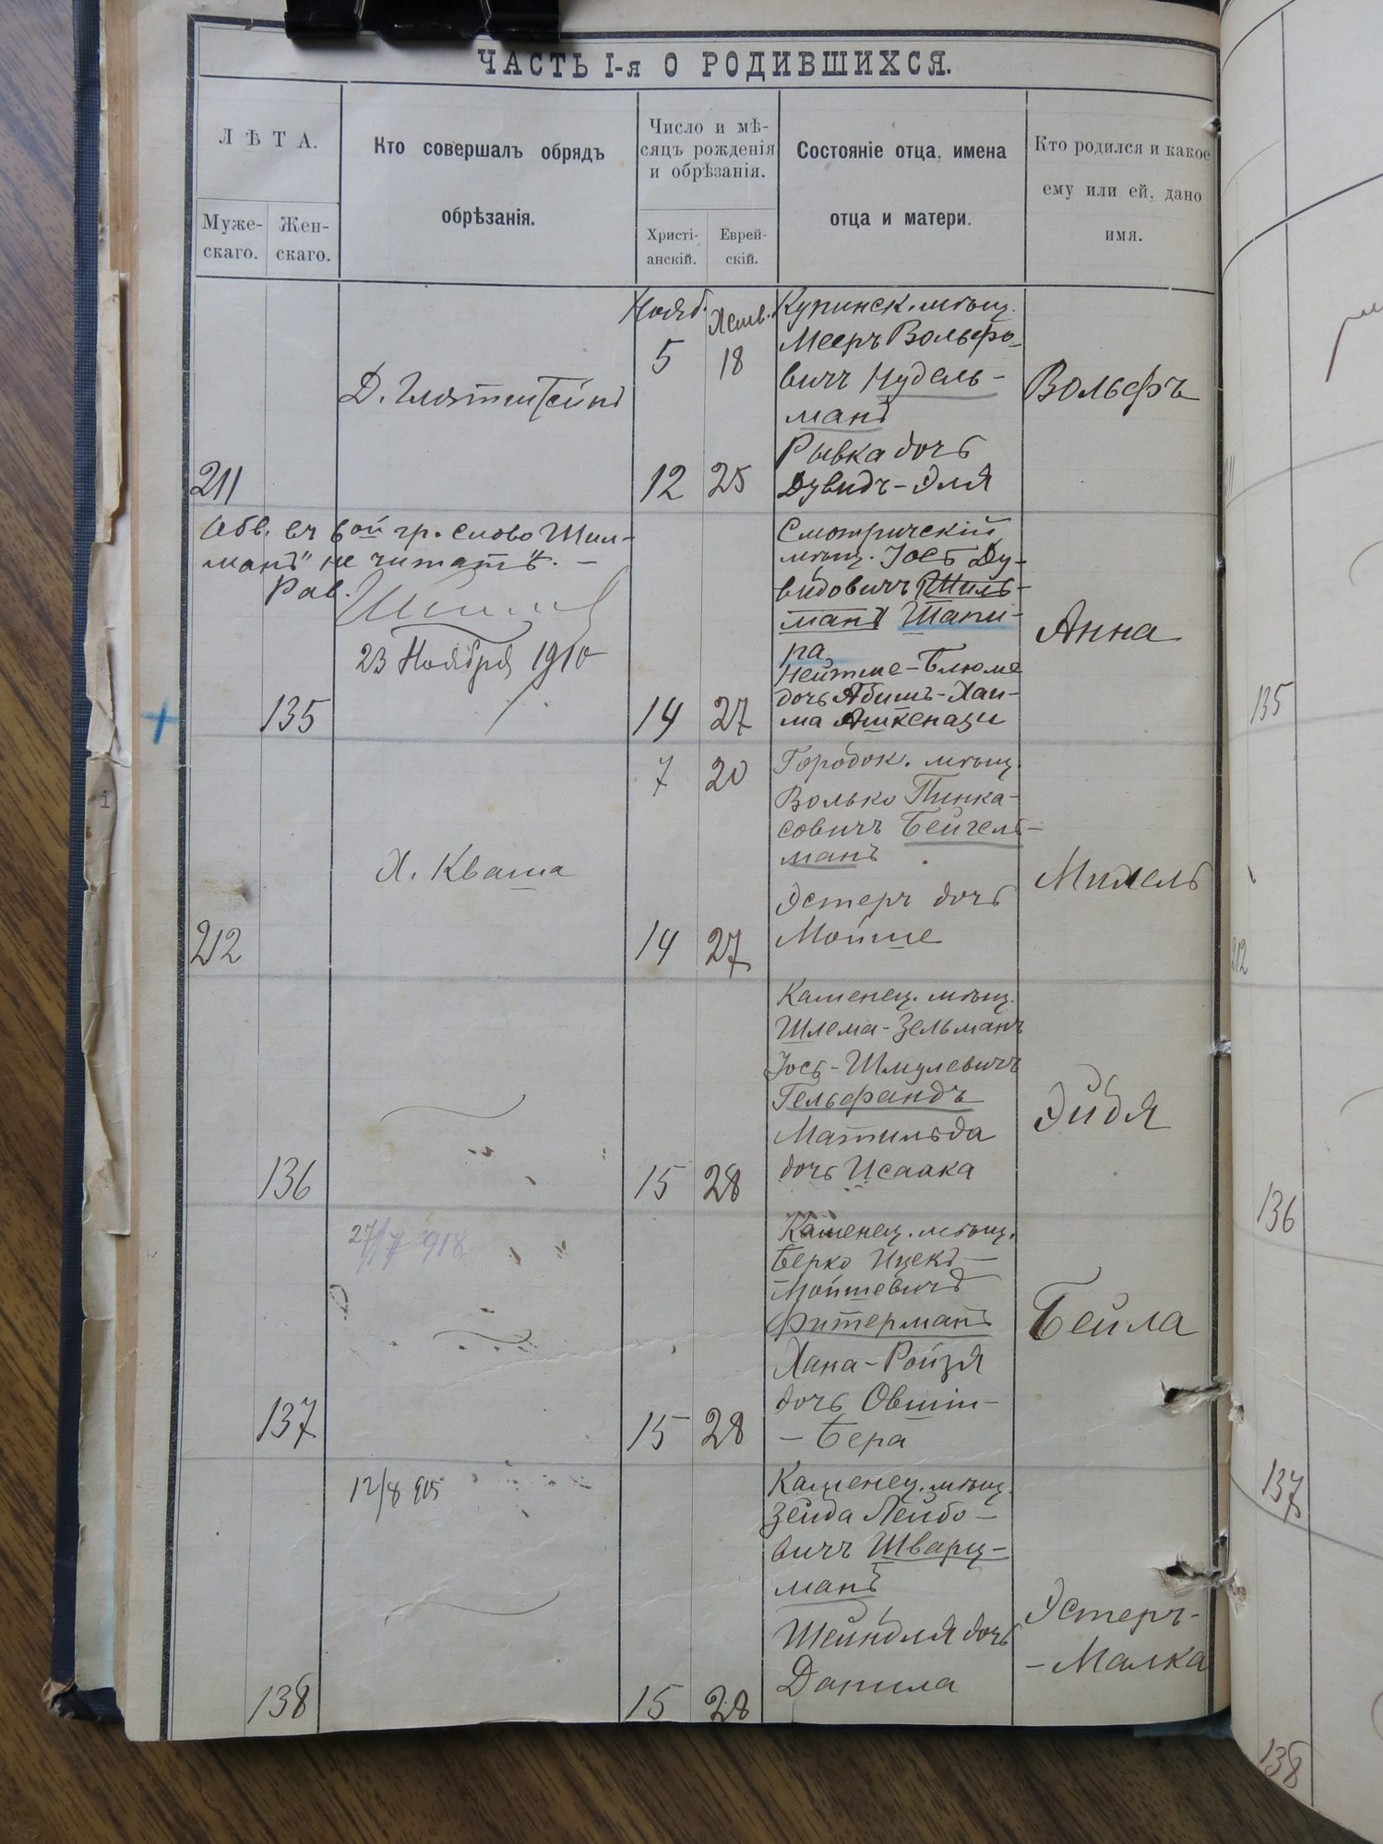 ЧАСТЬ I-я О РОДИВШИХСЯ.
ЛѢТА.
Муже-
скаго.
Жен-
скаго.
Кто совершалъ обрядъ
обрѣзанія.
Число и мѣ-
сяцъ рожденія
и обрѣзанія.
Христі-
анскій.
Еврей-
скій.
Состояніе отца, имена
отца и матери.
Кто родился и какое
ему или ей, дано
имя.
211
Нояб.
5
18
12
25
Купинск. мѣщ.
Мееръ Вольфо-
вичъ Нудель-
манъ
Рывка дочь
Дувидъ-Эля
Вольфъ
Обв. въ 6ой гр. слово Шил-
манъ" не читать. -
Рав.
23 Ноября 1910
135
14
27
Смотрическій
мѣщ. Іось Ду-
видовичъ Шиль-
манъ Шапи-
ра
Нейтше-Блюме
дочь Абишъ-Хаи-
ма Ашкенази
Анна
212
Х. Кваша
7
20
14
27
Городок. мѣщ.
Волько Пинка-
совичъ Бейгель-
манъ
Эстеръ дочь
Мойше
Михель
136
15
28
Каменец. мѣщ.
Шлема-Зельманъ
Іось-Шмулевичъ
Гельфандъ
Матильда
дочь Исаака
Эйдя
137
27/7 918
15
28
Каменец. мѣщ.
Берко Ицекъ-
Мойшевичъ
Фитерманъ
Хана-Ройзя
дочь Овшіи-
-Бера
Бейла
138
12/8 915
15
28
Каменец. мѣщ.
Зейда Лейбо-
вичъ Шварц-
манъ
Шейндля дочь
Данила
Эстеръ-
-Малка
135
212
136
137
138